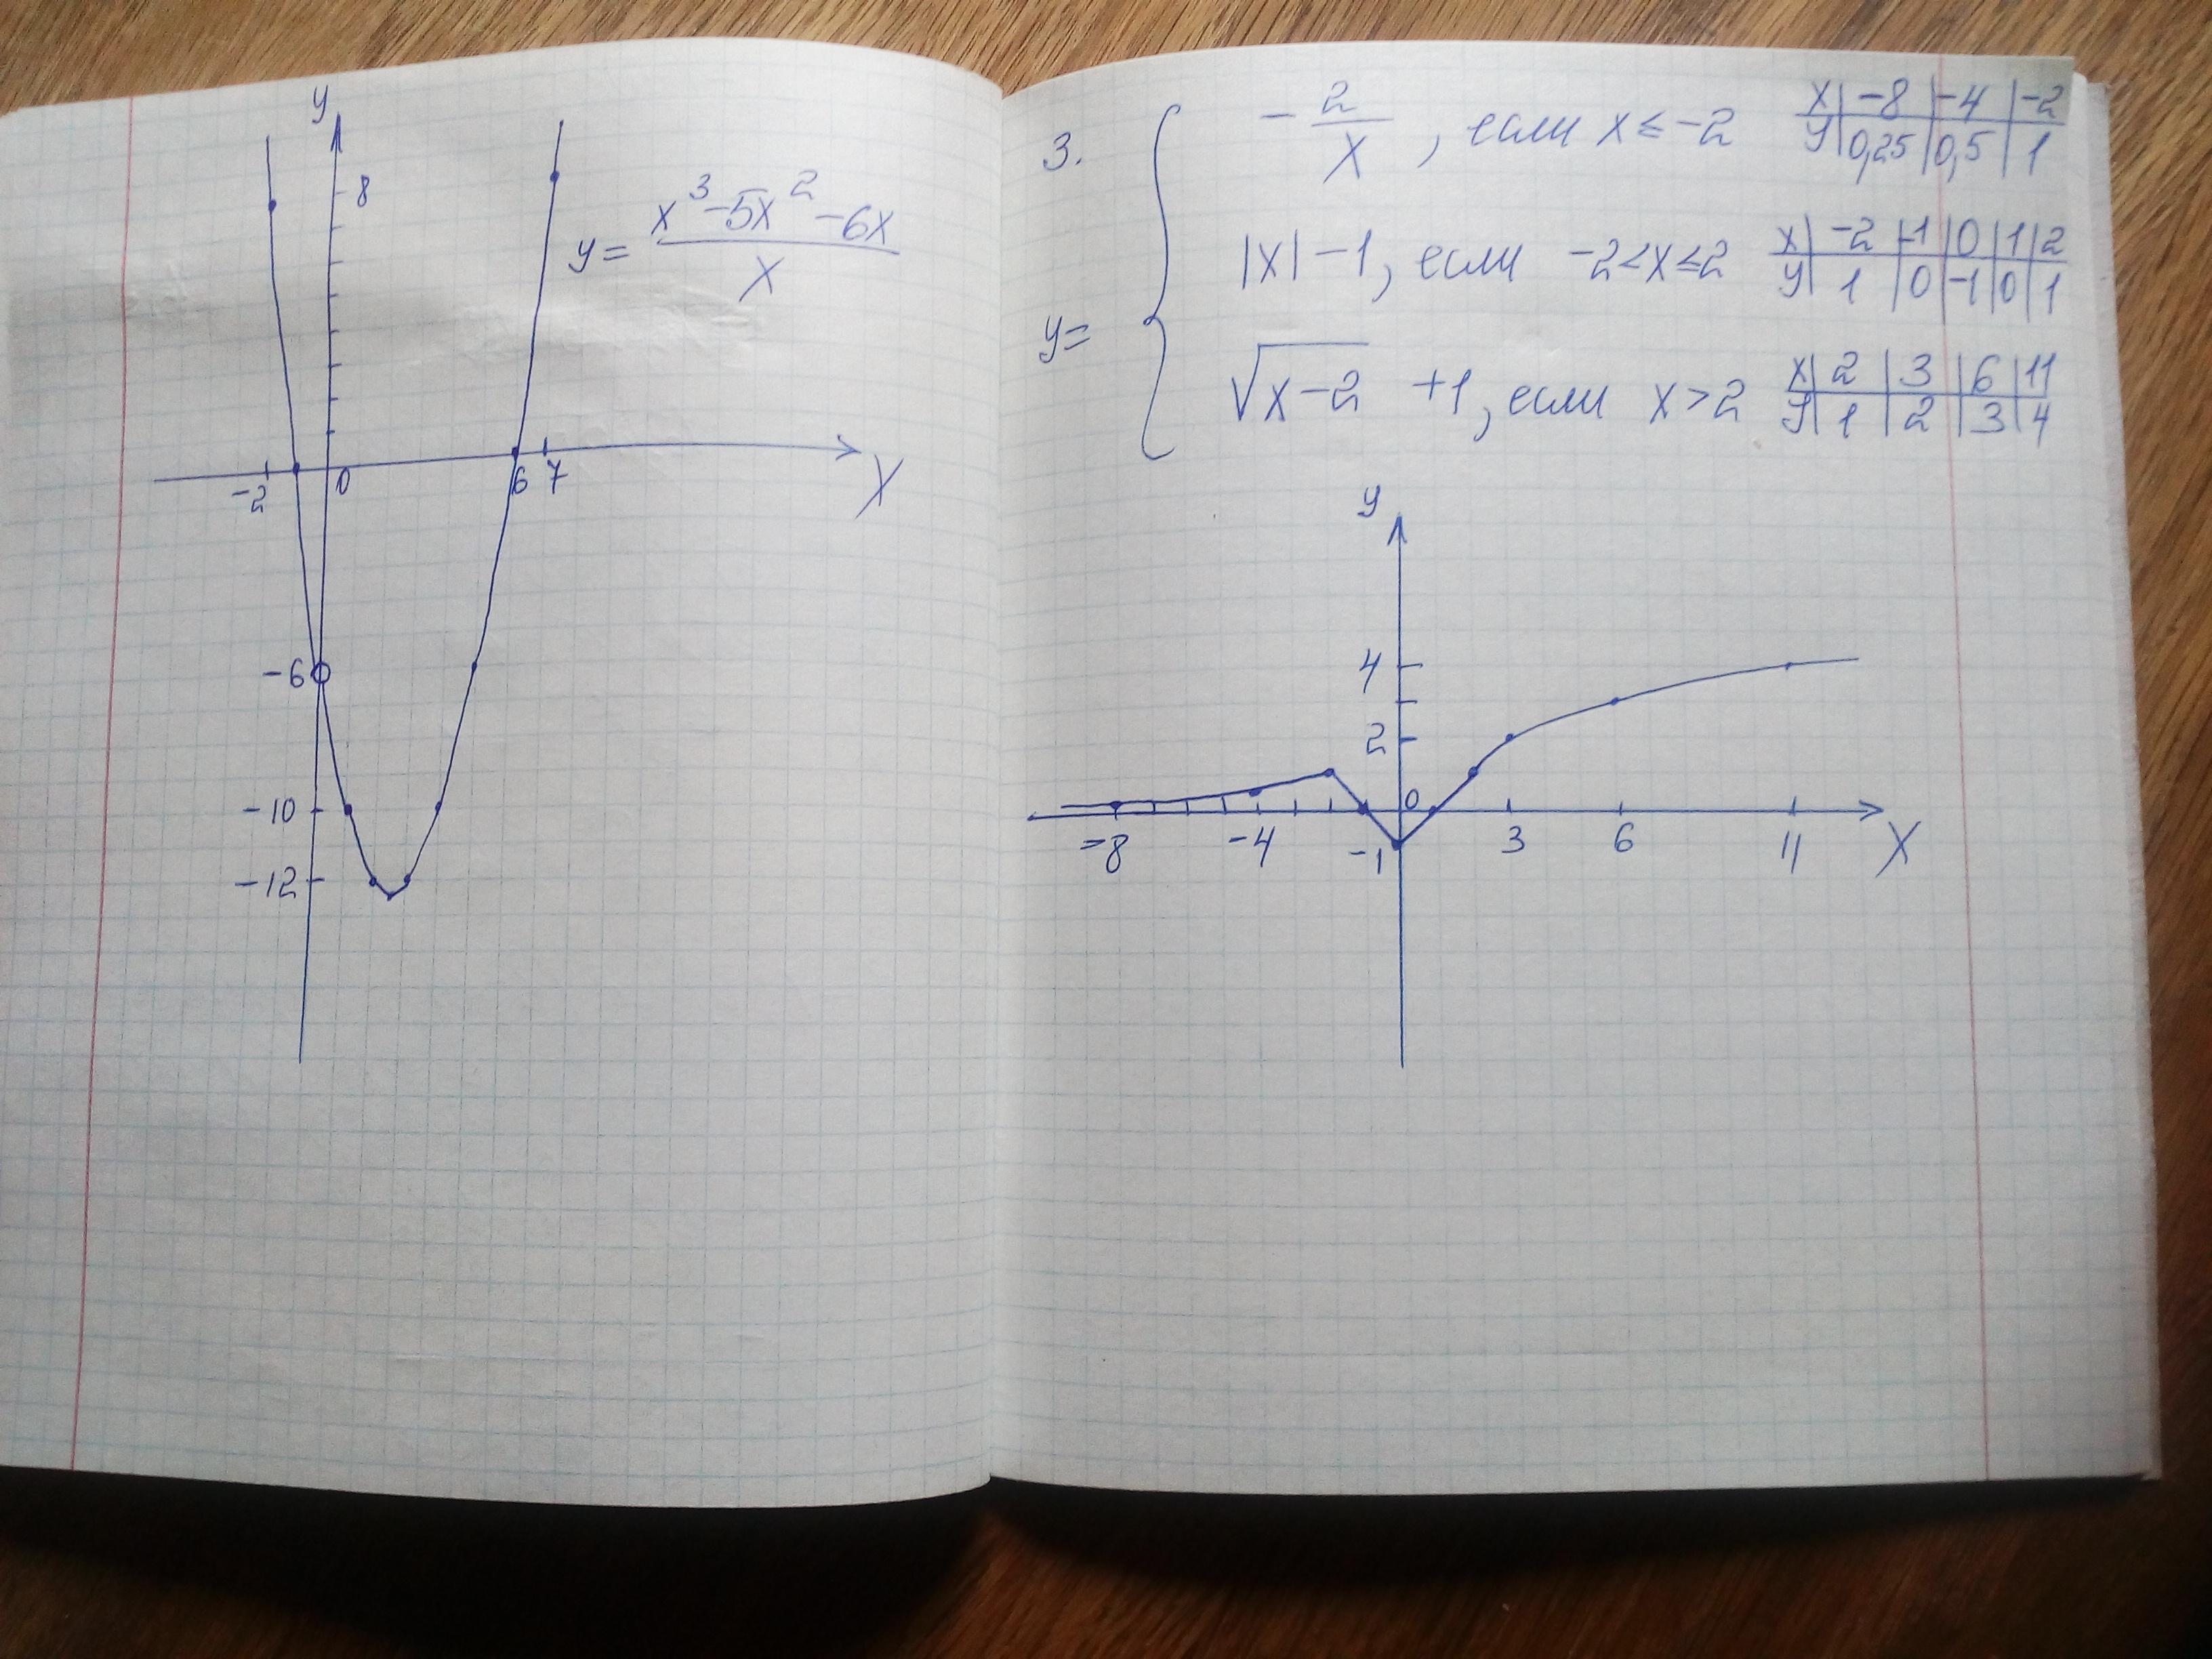 y
8
y = (x³-5x²-6x)/x
-2 0 6 7 X
-6
-10
-12
3.
y= { - 2/x , если x ≤ -2
|x| - 1, если -2 < x ≤ 2
√(x-2) +1, если x > 2
x | -8 | -4 | -2
y | 0,25 | 0,5 | 1
x | -2 | -1 | 0 | 1 | 2
y | 1 | 0 | -1 | 0 | 1
x | 2 | 3 | 6 | 11
y | 1 | 2 | 3 | 4
y
4
2
0
-8 -4 -1 3 6 11 X